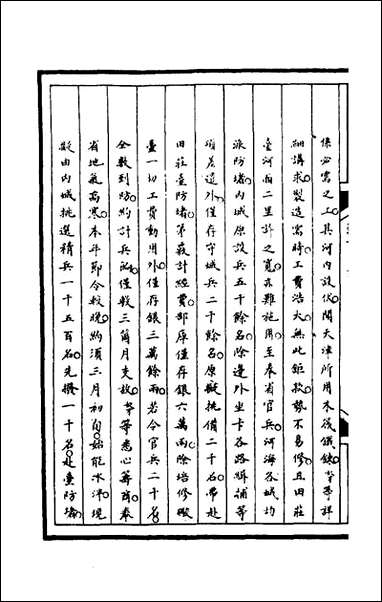 係必需之工具河內設伏聞天津所用木筏鐵鍊等等詳
細講求製造需時工費浩大無此鉅款勢不易修且田莊
臺河面二里許之寬亦難施用至奉省官兵河海各城均
派防堵內城原設兵五千餘名除邊外坐卡各路緝捕等
項差遣外僅存守城兵二千餘名原擬挑備二千名帶赴
田莊臺防堵第嚴計經費部庫僅存銀六萬兩除培修礮
臺一切工費動用外僅存銀三萬餘兩若令官兵二千名
全數到防約計兵餉僅敷三箇月支放等等悉心籌商奉
省地氣高寒本年節令較晚約須三月初旬始能冰泮現
擬由內城挑選精兵一千五百名先撥一千名赴臺防堵